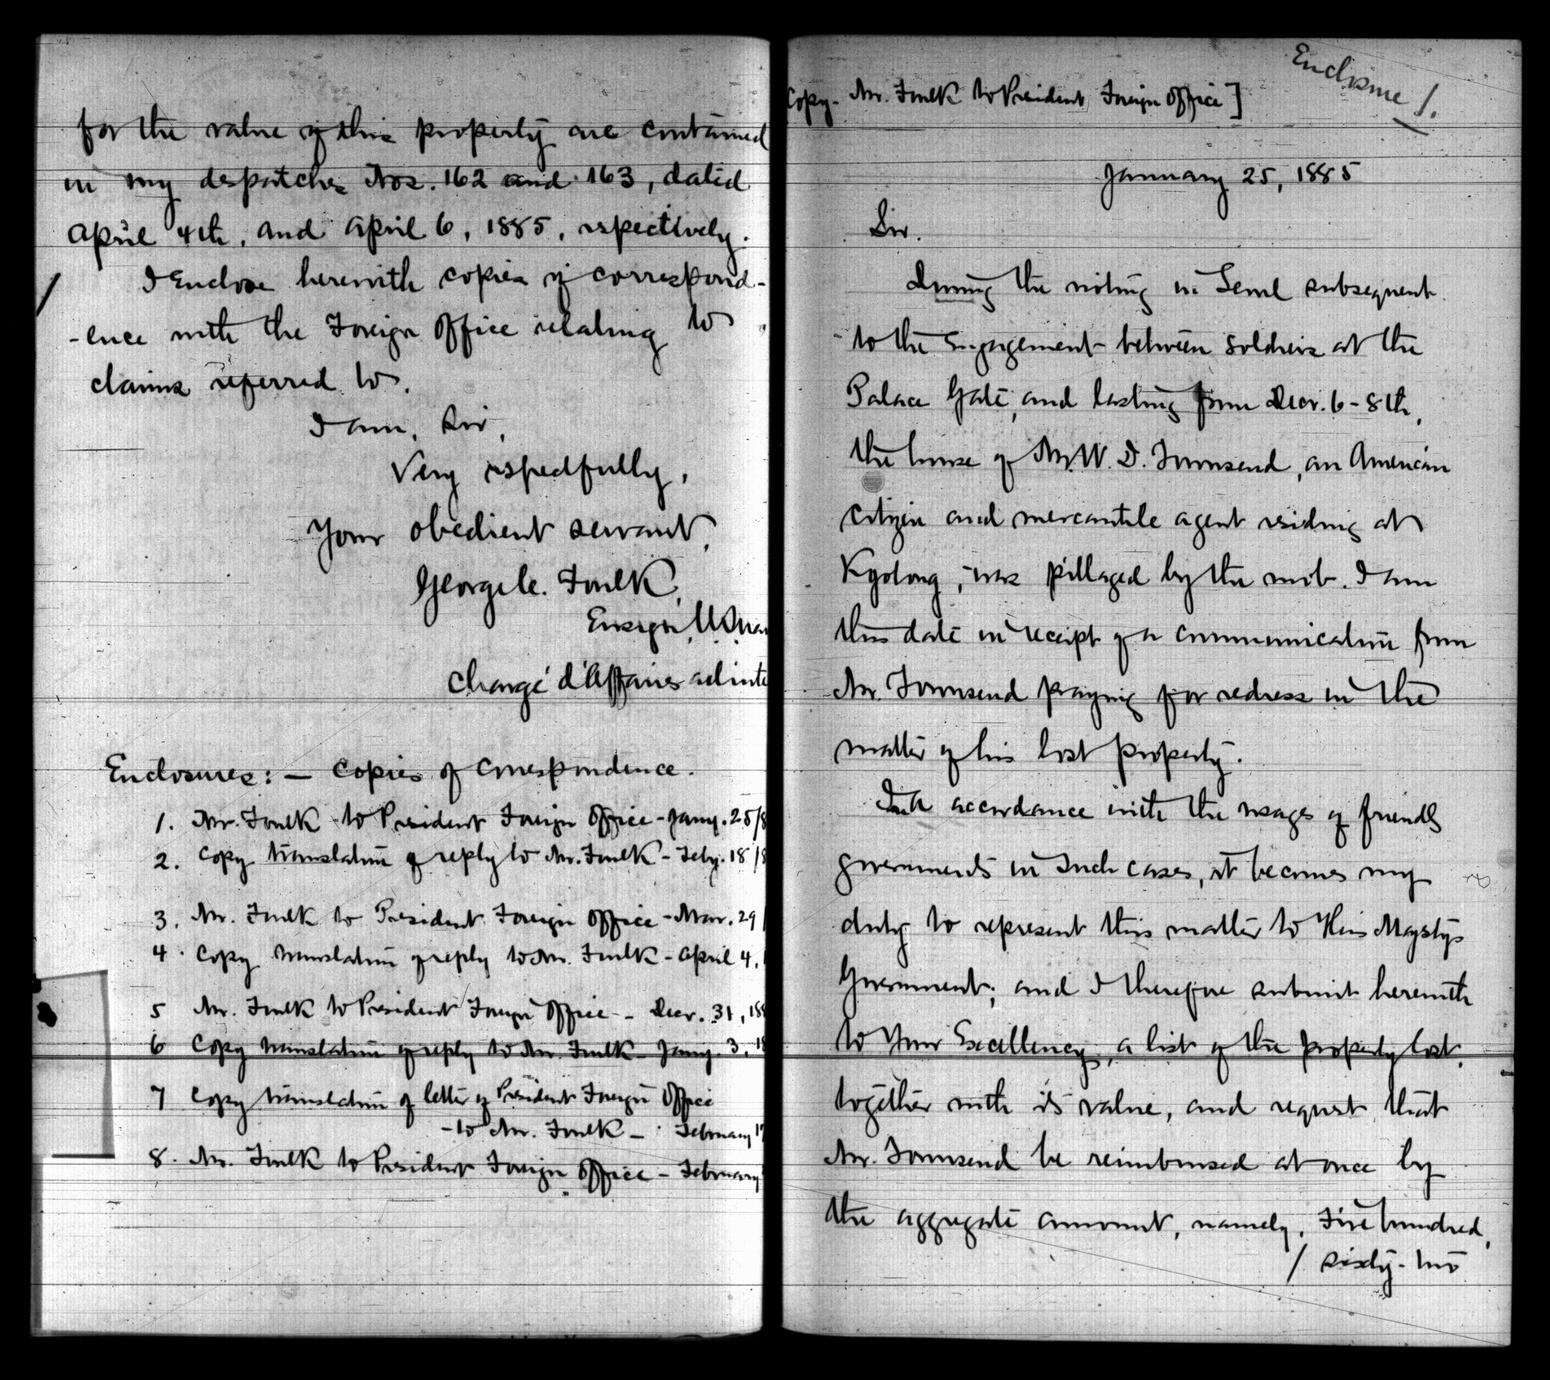 for the value of this property are contained
in my despatches Nos. 162 and 163, dated
April 4th, and April 6, 1885, respectively.
I Enclose herewith copies of correspond-
-ence with the Foreign Office relating to
claims referred to.
I am, Sir,
Very respectfully,
Your obedient servant,
George C. Foulk,
Ensign, U.S. Nav
Chargé d'Affaires ad inte
Enclosures: — Copies of Correspondence.
1. Mr. Foulk to President Foreign Office - Jany. 25/8
2. Copy translation of reply to Mr. Foulk - Feby. 18/8
3. Mr. Foulk to President Foreign Office - Mar. 29/
4. Copy translation of reply to Mr. Foulk - April 4,
5 Mr. Foulk to President Foreign Office - Decr. 31, 188
6 Copy translation of reply to Mr. Foulk - Jany. 3, 18
7 Copy translation of letter of President Foreign Office
- to Mr. Foulk - February 17
8. Mr. Foulk to President Foreign Office - February
Enclosure 1.
Copy - Mr. Foulk to President Foreign Office]
January 25, 1885
Sir.
During the rioting in Seoul subsequent
to the Engagement between soldiers at the
Palace Gate, and lasting from Decr. 6-8th,
the house of Mr. W. D. Townsend, an American
citizen and mercantile agent residing at
Kyotong, was pillaged by the mob. I am
this date in receipt of a communication from
Mr. Townsend praying for redress in the
matter of his lost property.
In accordance with the usages of friendly
governments in such cases, it becomes my
duty to represent this matter to His Majesty's
Government; and I therefore submit herewith
to Your Excellency, a list of the property lost,
together with its value, and request that
Mr. Townsend be reimbursed at once by
the aggregate amount, namely, Five hundred,
/ sixty-two